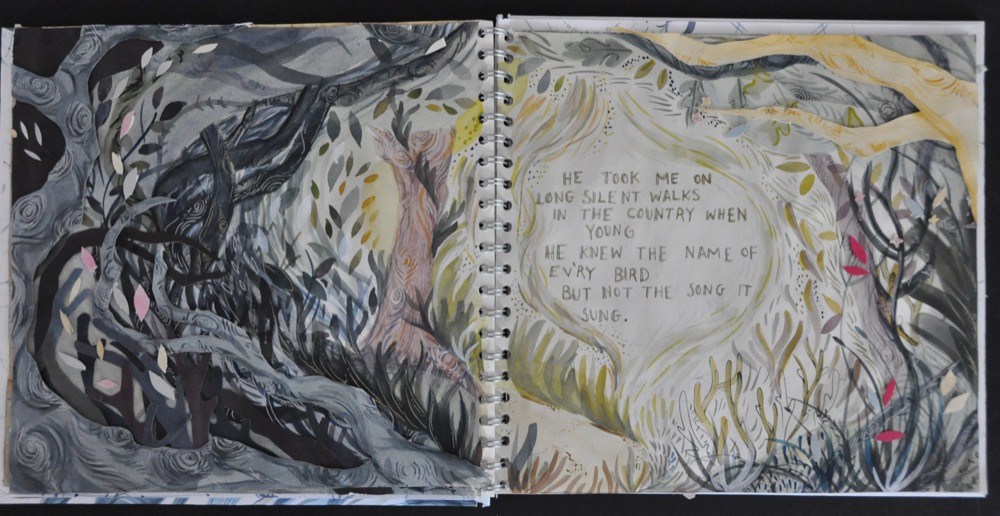 HE TOOK ME ON
LONG SILENT WALKS
IN THE COUNTRY WHEN
YOUNG
HE KNEW THE NAME OF
EV'RY BIRD
BUT NOT THE SONG IT
SUNG.